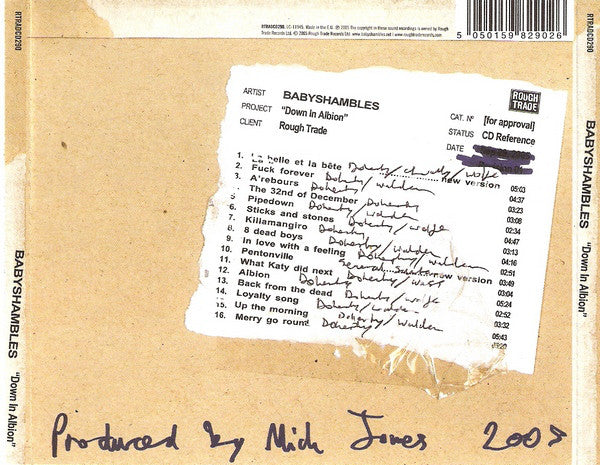 RTRADCD290
RTRADCD290. LC-11945. Made in the E.U. ℗ 2005 The copyright in these sound recordings is owned by Rough
Trade Records Ltd. © 2005 Rough Trade Records Ltd. www.babyshambles.net | www.roughtraderecords.com
5 050159 829026
RTRADCD290
ROUGH TRADE
ARTIST BABYSHAMBLES
PROJECT "Down In Albion"
CLIENT Rough Trade
CAT. Nº [for approval]
STATUS CD Reference
DATE
1. La belle et la bête Doherty/ /Wolfe 05:03
2. Fuck forever Doherty/Walden new version 04:37
3. A'rebours Doherty/Walden 03:23
4. The 32nd of December Doherty 03:08
5. Pipedown Doherty/Walden 02:34
6. Sticks and stones Doherty/ 04:47
7. Killamangiro Doherty/Walden 03:13
8. 8 dead boys Doherty/Walden 04:16
9. In love with a feeling Doherty/Walden 02:51
10. Pentonville General 03:49
11. What Katy did next new version 03:04
12. Albion Doherty 05:24
13. Back from the dead Doherty/Wolfe 02:52
14. Loyalty song Doherty/Walden 03:32
15. Up the morning Doherty/Walden 05:43
16. Merry go round Doherty 03:20
Produced by Mick Jones 2005
BABYSHAMBLES "Down In Albion"
BABYSHAMBLES "Down In Albion"